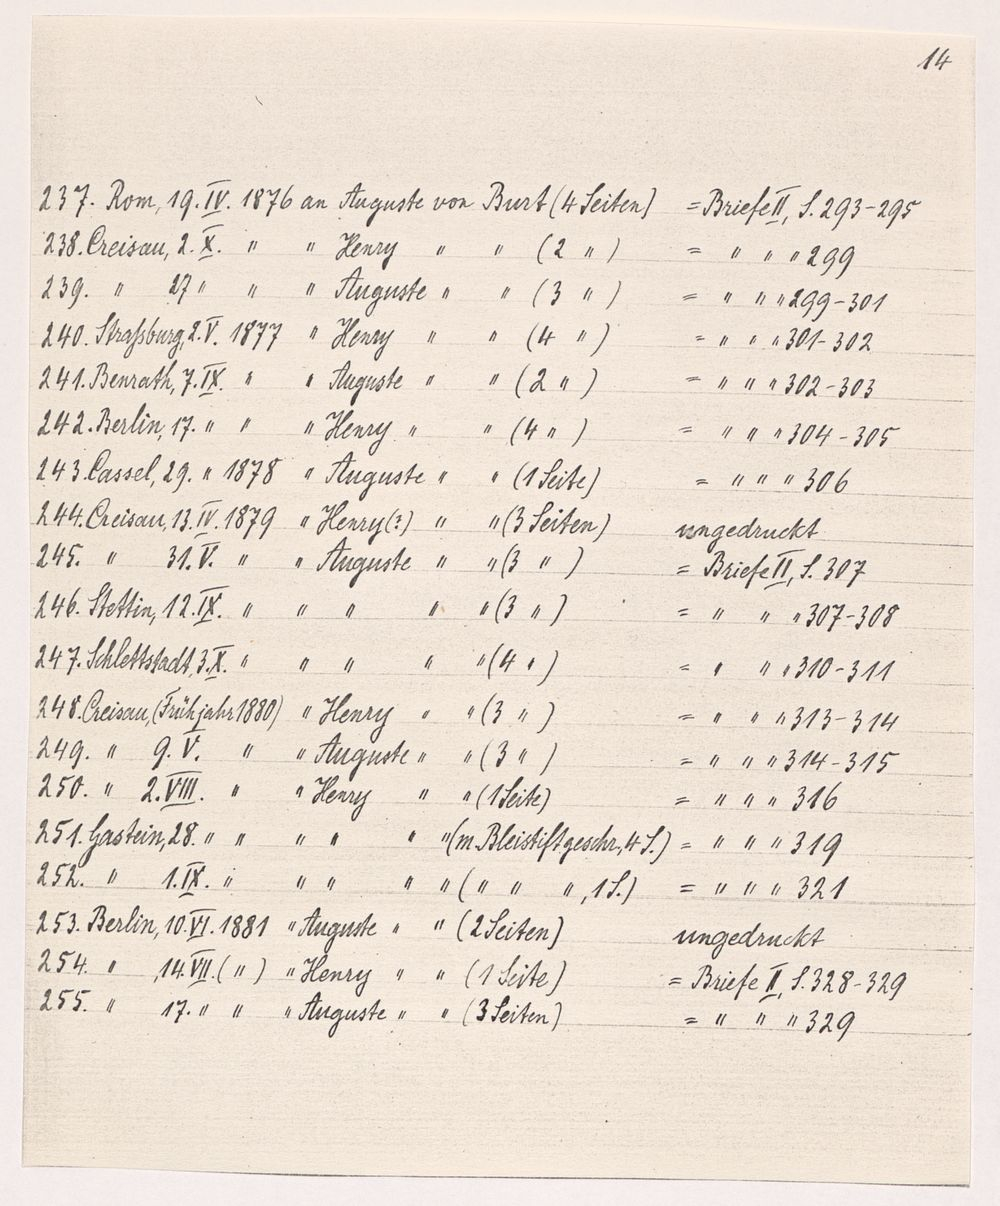 14
237. Rom, 19. IV. 1876 an Auguste von Burt (4 Seiten) = Briefe II, S. 293-295
238. Creisau, 2. X. " " Henry " " (2 " ) = " " " 299
239. " 27 " " " Auguste " " (3 " ) = " " " 299-301
240. Straßburg, 2. V. 1877 " Henry " " (4 " ) = " " " 301-302
241. Benrath, 7. IX. " " Auguste " " (2 " ) = " " " 302-303
242. Berlin, 17. " " " Henry " " (4 " ) = " " " 304-305
243. Cassel, 29. " 1878 " Auguste " " (1 Seite) = " " " 306
244. Creisau, 13. IV. 1879 " Henry (?) " " (3 Seiten) ungedruckt
245. " 31. V. " " Auguste " " (3 " ) = Briefe II, S. 307
246. Stettin, 12. IX. " " " " " (3 " ) = " " " 307-308
247. Schlettstadt, 3. X. " " " " " (4 " ) = " " " 310-311
248. Creisau, (Frühjahr 1880) " Henry " " (3 " ) = " " " 313-314
249. " 9. V. " " Auguste " " (3 " ) = " " " 314-315
250. " 2. VIII. " " Henry " " (1 Seite) = " " " 316
251. Gastein, 28. " " " " " " (m. Bleistift geschr., 4 S.) = " " " 319
252. " 1. IX. " " " " " ( " " " , 1 S.) = " " " 321
253. Berlin, 10. VI. 1881 " Auguste " " (2 Seiten) ungedruckt
254. " , 14. VII. ( " ) " Henry " " (1 Seite) = Briefe II, S. 328-329
255. " 17. " " " Auguste " " (3 Seiten) = " " " 329